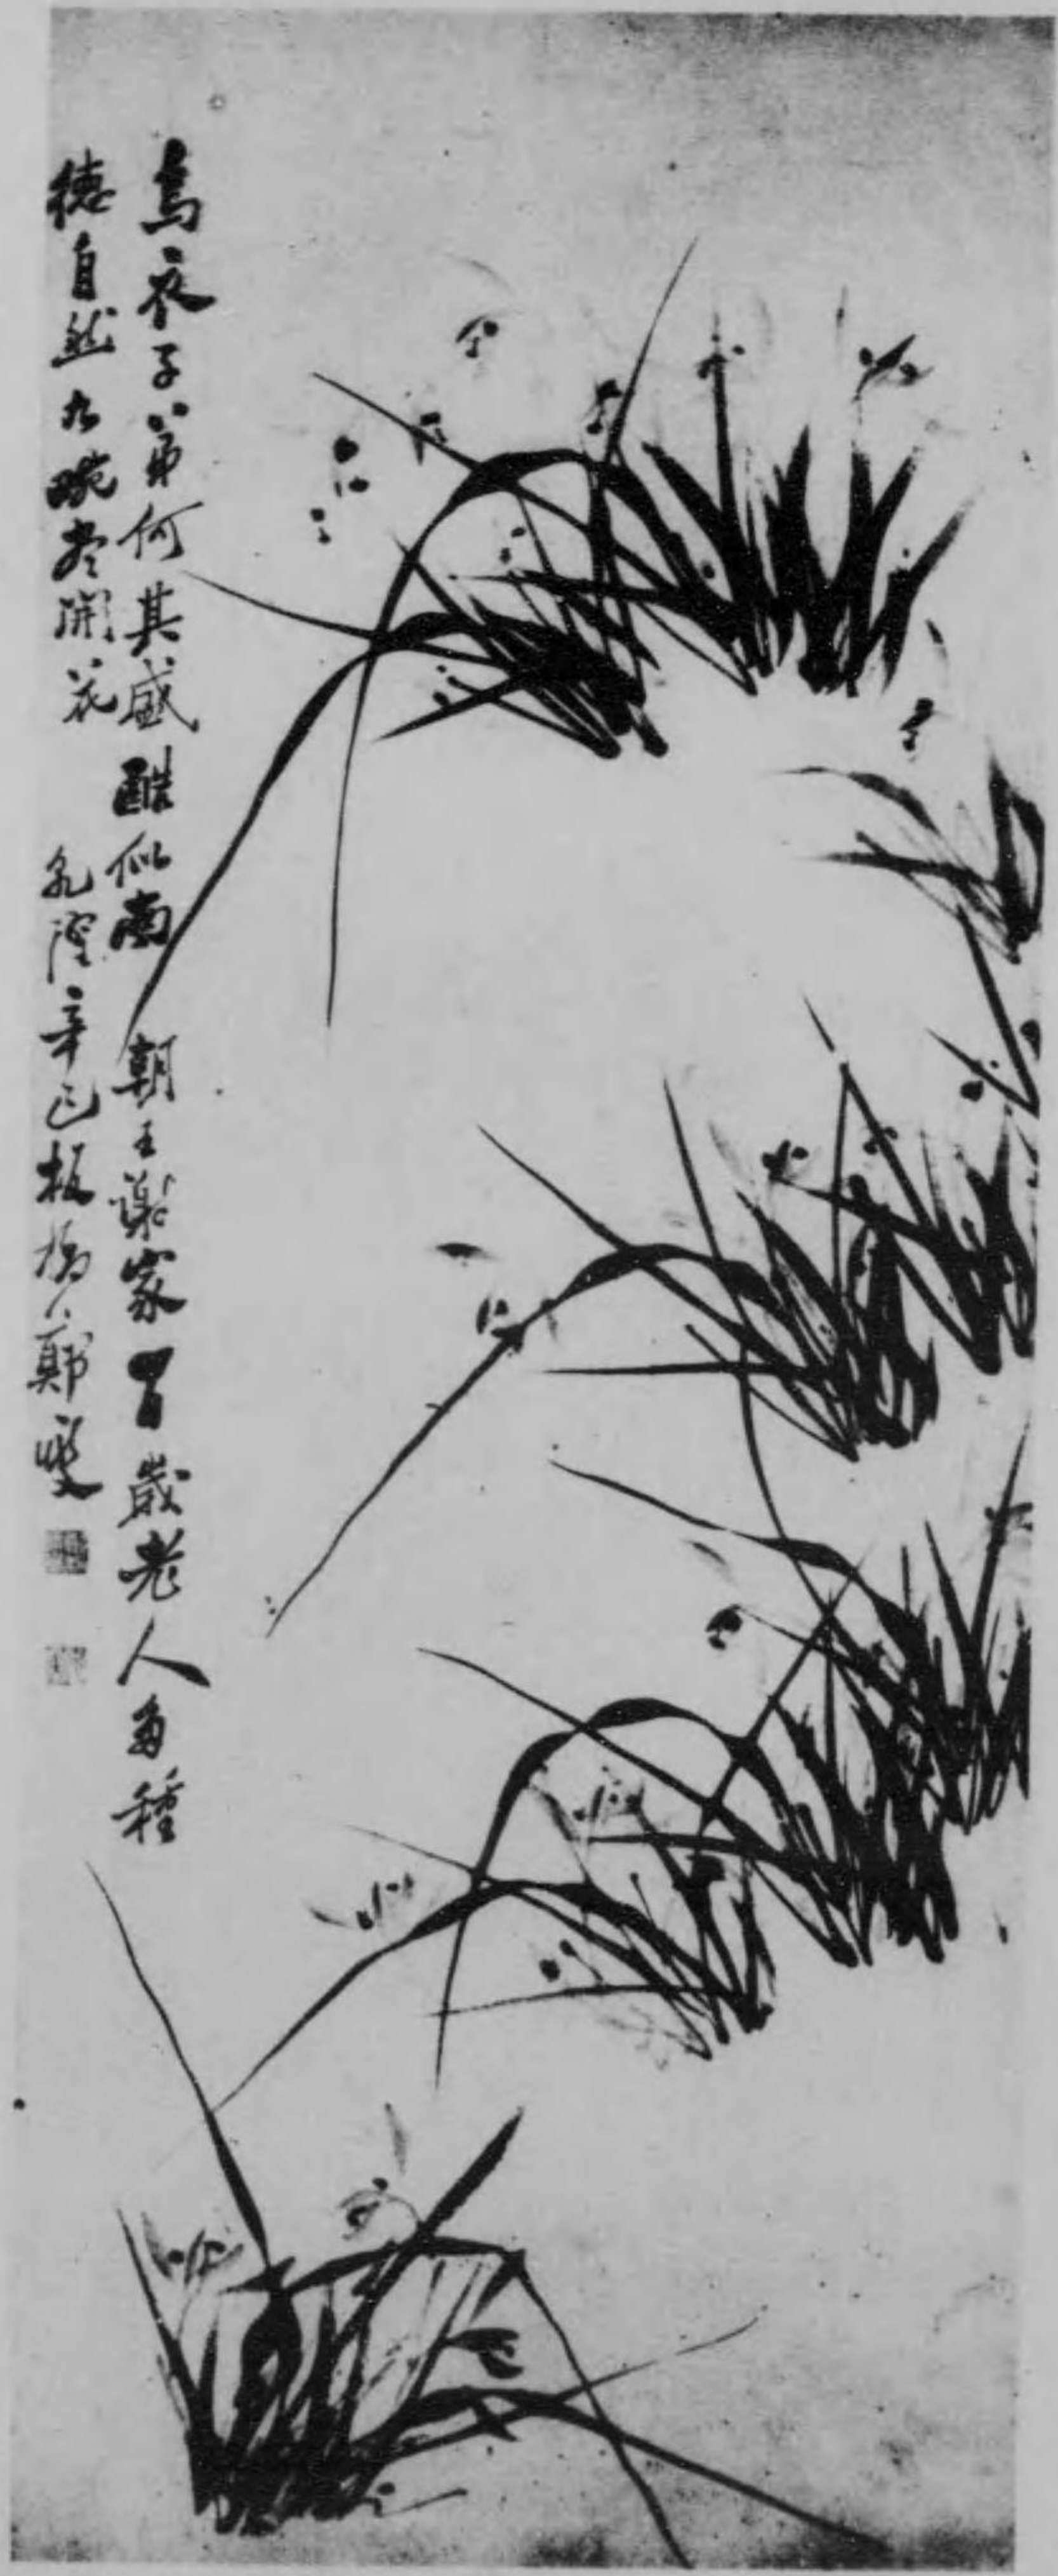 烏衣子弟何其盛酷似南朝王謝家百歲老人多種
德自然九畹盡開花 乾隆辛巳板橋鄭燮